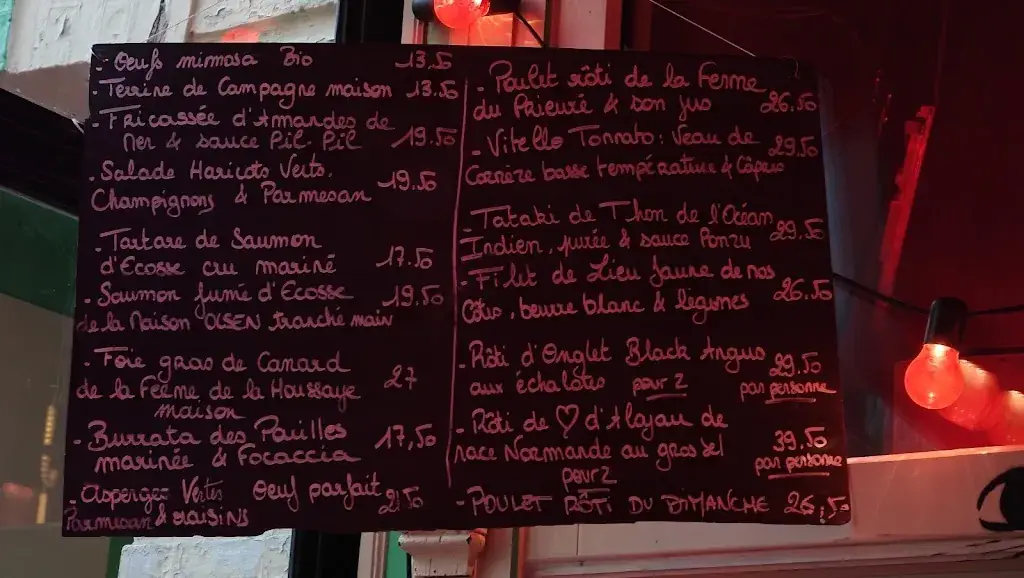 - Oeufs mimosa Bio 13.50
- Terrine de Campagne maison 13.50
- Fricassée d'Amandes de
Mer & sauce Pil. Pil 19.50
- Salade Haricots Verts,
Champignons & Parmesan 19.50
- Tartare de Saumon
d'Ecosse cru mariné 17.50
- Saumon fumé d'Ecosse 19.50
de la Maison OLSEN tranché main
- Foie gras de Canard
de la Ferme de la Houssaye 27
maison
- Burrata des Pouilles 17,50
marinée & Focaccia
- Asperges Vertes Oeuf parfait 21.50
Parmesan & raisins
- Poulet rôti de la Ferme
du Prieuré & son jus 26.50
- Vitello Tonnato : Veau de 29.50
Corrèze basse température & Câpres
- Tataki de Thon de l'Océan
Indien, purée & sauce Ponzu 29.50
- Filet de Lieu Jaune de nos
Côtes, beurre blanc & légumes 26.50
- Rôti d'Onglet Black Angus 29.50
aux échalotes pour 2 par personne
- Rôti de ♡ d'Aloyau de
race Normande au gros sel 39.50
pour 2 par personne
- POULET RÔTI DU DIMANCHE 26,50